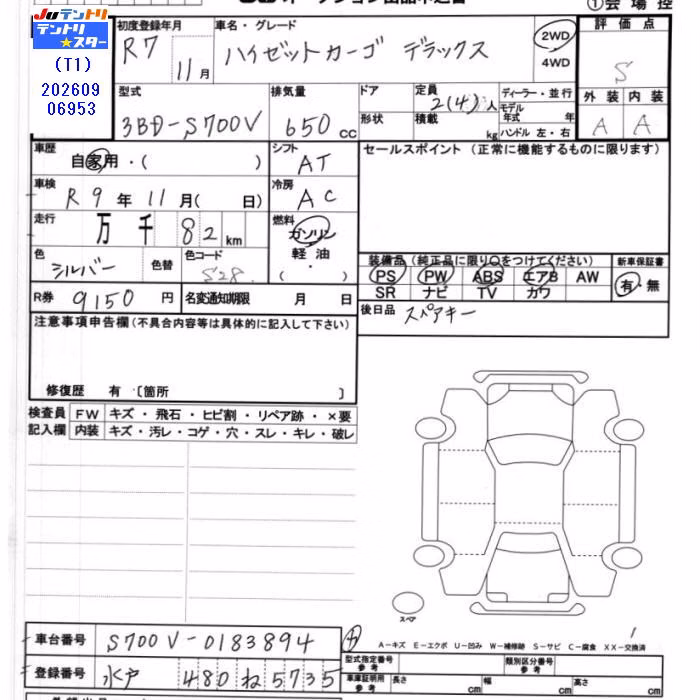 JUテントリ
テントリ
スター
(T1)
202609
06953
①会場控
初度登録年月
R7
11月
車名・グレード
ハイゼットカーゴ デラックス
2WD
4WD
評価点
S
外装 内装
A A
型式
3BD-S700V
排気量
650cc
ドア
形状
定員
2(4)人
積載
kg
ディーラー・並行
モデル
年式 年
ハンドル 左・右
車歴
自家用・( )
シフト
AT
セールスポイント(正常に機能するものに限ります)
車検
R9年11月( 日)
冷房
AC
走行
万千82km
燃料
ガソリン
軽油
・
( )
色
シルバー
色替
色コード
S28
装備品(純正品に限り○をつけてください)
新車保証書
PS PW ABS エアB AW
SR ナビ TV カワ
有・無
R券 9150円
名変通知期限 月 日
後日品 スペアキー
注意事項申告欄(不具合内容等は具体的に記入して下さい)
修復歴 有・〔箇所 〕
検査員
記入欄
FW キズ・飛石・ヒビ割・リペア跡・×要
内装 キズ・汚レ・コゲ・穴・スレ・キレ・破レ
スペア
A-キズ E-エクボ U-凹み W-補修跡 S-サビ C-腐食 XX-交換済
車台番号 S700V-0183894
登録番号 水戸 480 ね 5735
型式指定番号
参考
類別区分番号
参考
車庫証明用
参考
長さ cm 幅 cm 高さ cm